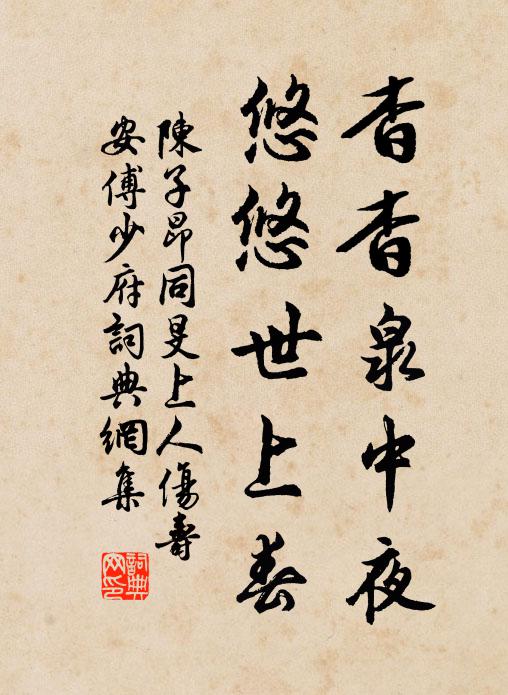 杳杳泉中夜
悠悠世上春
陳子昂同旻上人傷壽
安傅少府詞典網集
詞典
网印